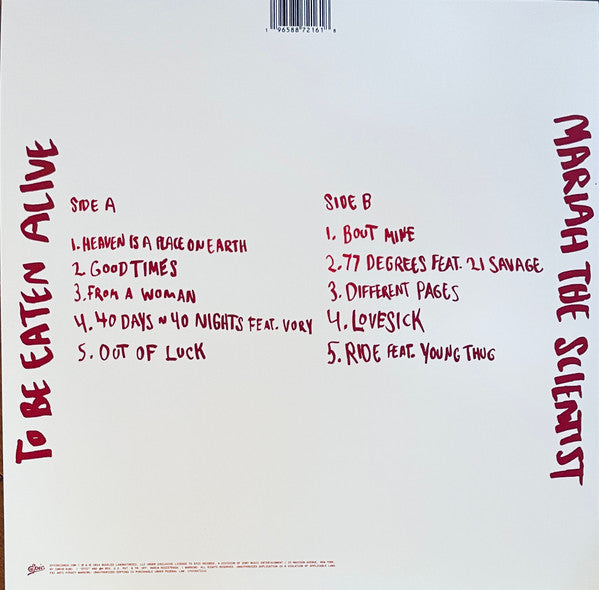 1 96588 72161 8
TO BE EATEN ALIVE
SIDE A
1. HEAVEN IS A PLACE ON EARTH
2. GOOD TIMES
3. FROM A WOMAN
4. 40 DAYS N 40 NIGHTS FEAT. VORY
5. OUT OF LUCK
SIDE B
1. BOUT MINE
2. 77 DEGREES FEAT. 21 SAVAGE
3. DIFFERENT PAGES
4. LOVESICK
5. RIDE FEAT. YOUNG THUG
MARIAH THE SCIENTIST
Epic